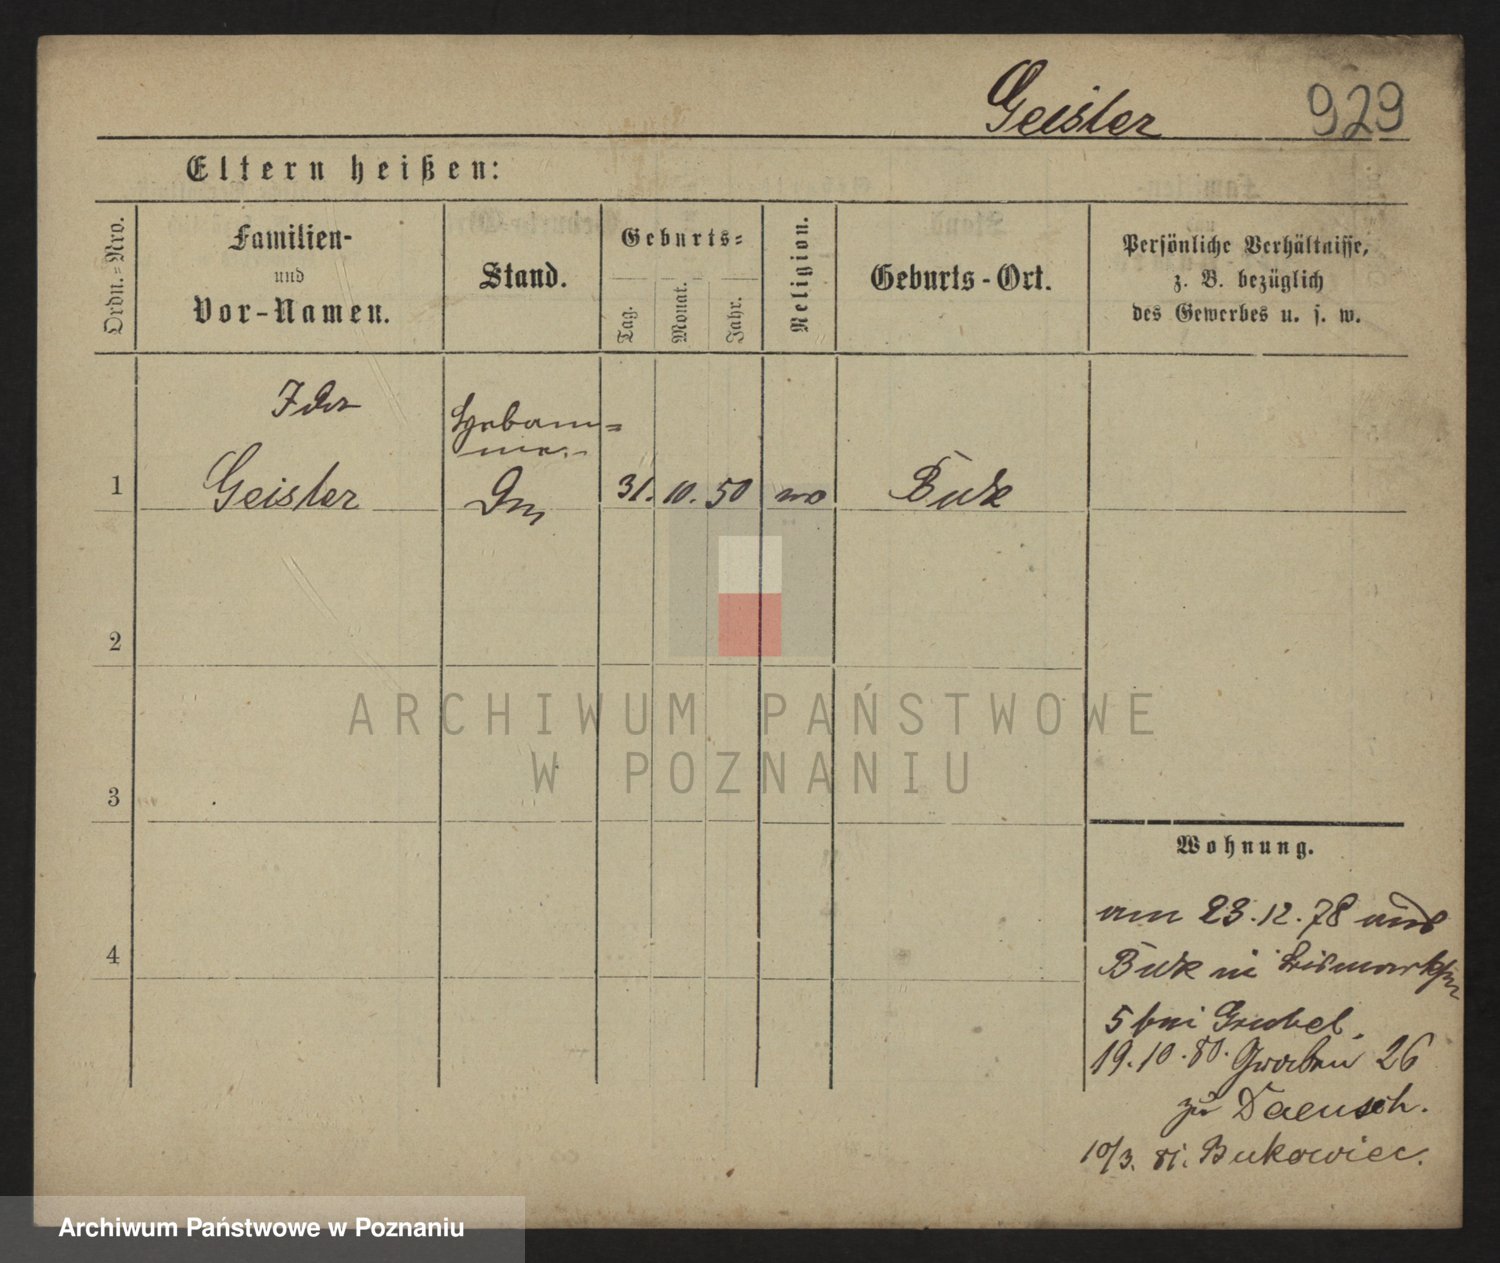 Geisler
929
Eltern heißen:
Ordn.=Nro.
Familien-
und
Vor-Namen.
Stand.
Geburts=
Tag.
Monat.
Jahr.
Religion.
Geburts-Ort.
Persönliche Verhältnisse,
z. B. bezüglich
des Gewerbes u. s. w.
1
Ida
Geisler
Hebam=
me.
31. 10. 50
Buk
2
3
4
Wohnung.
am 23.12.78 aus
Buk in Bismarkstr
5 bei Grubel.
19.10.80. Graben 26
zu Daensch.
10/3. 81. Bukowiec.
ARCHIWUM PAŃSTWOWE
W POZNANIU
Archiwum Państwowe w Poznaniu